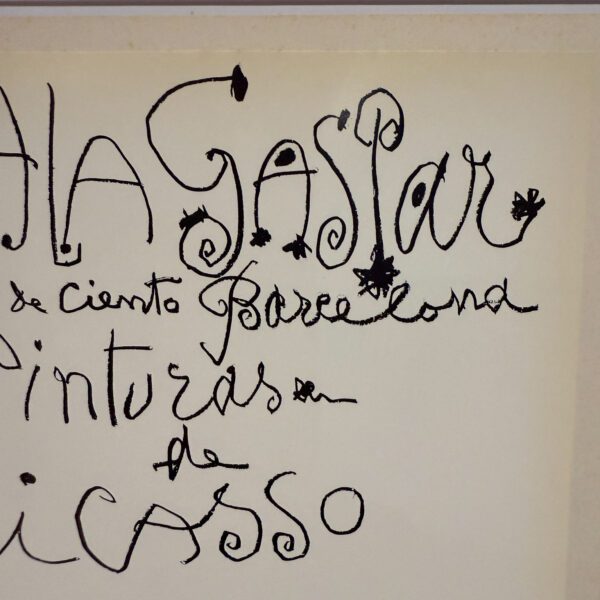 ALA GASPar
de Ciento Barcelona
Pinturas
de
iCASSO